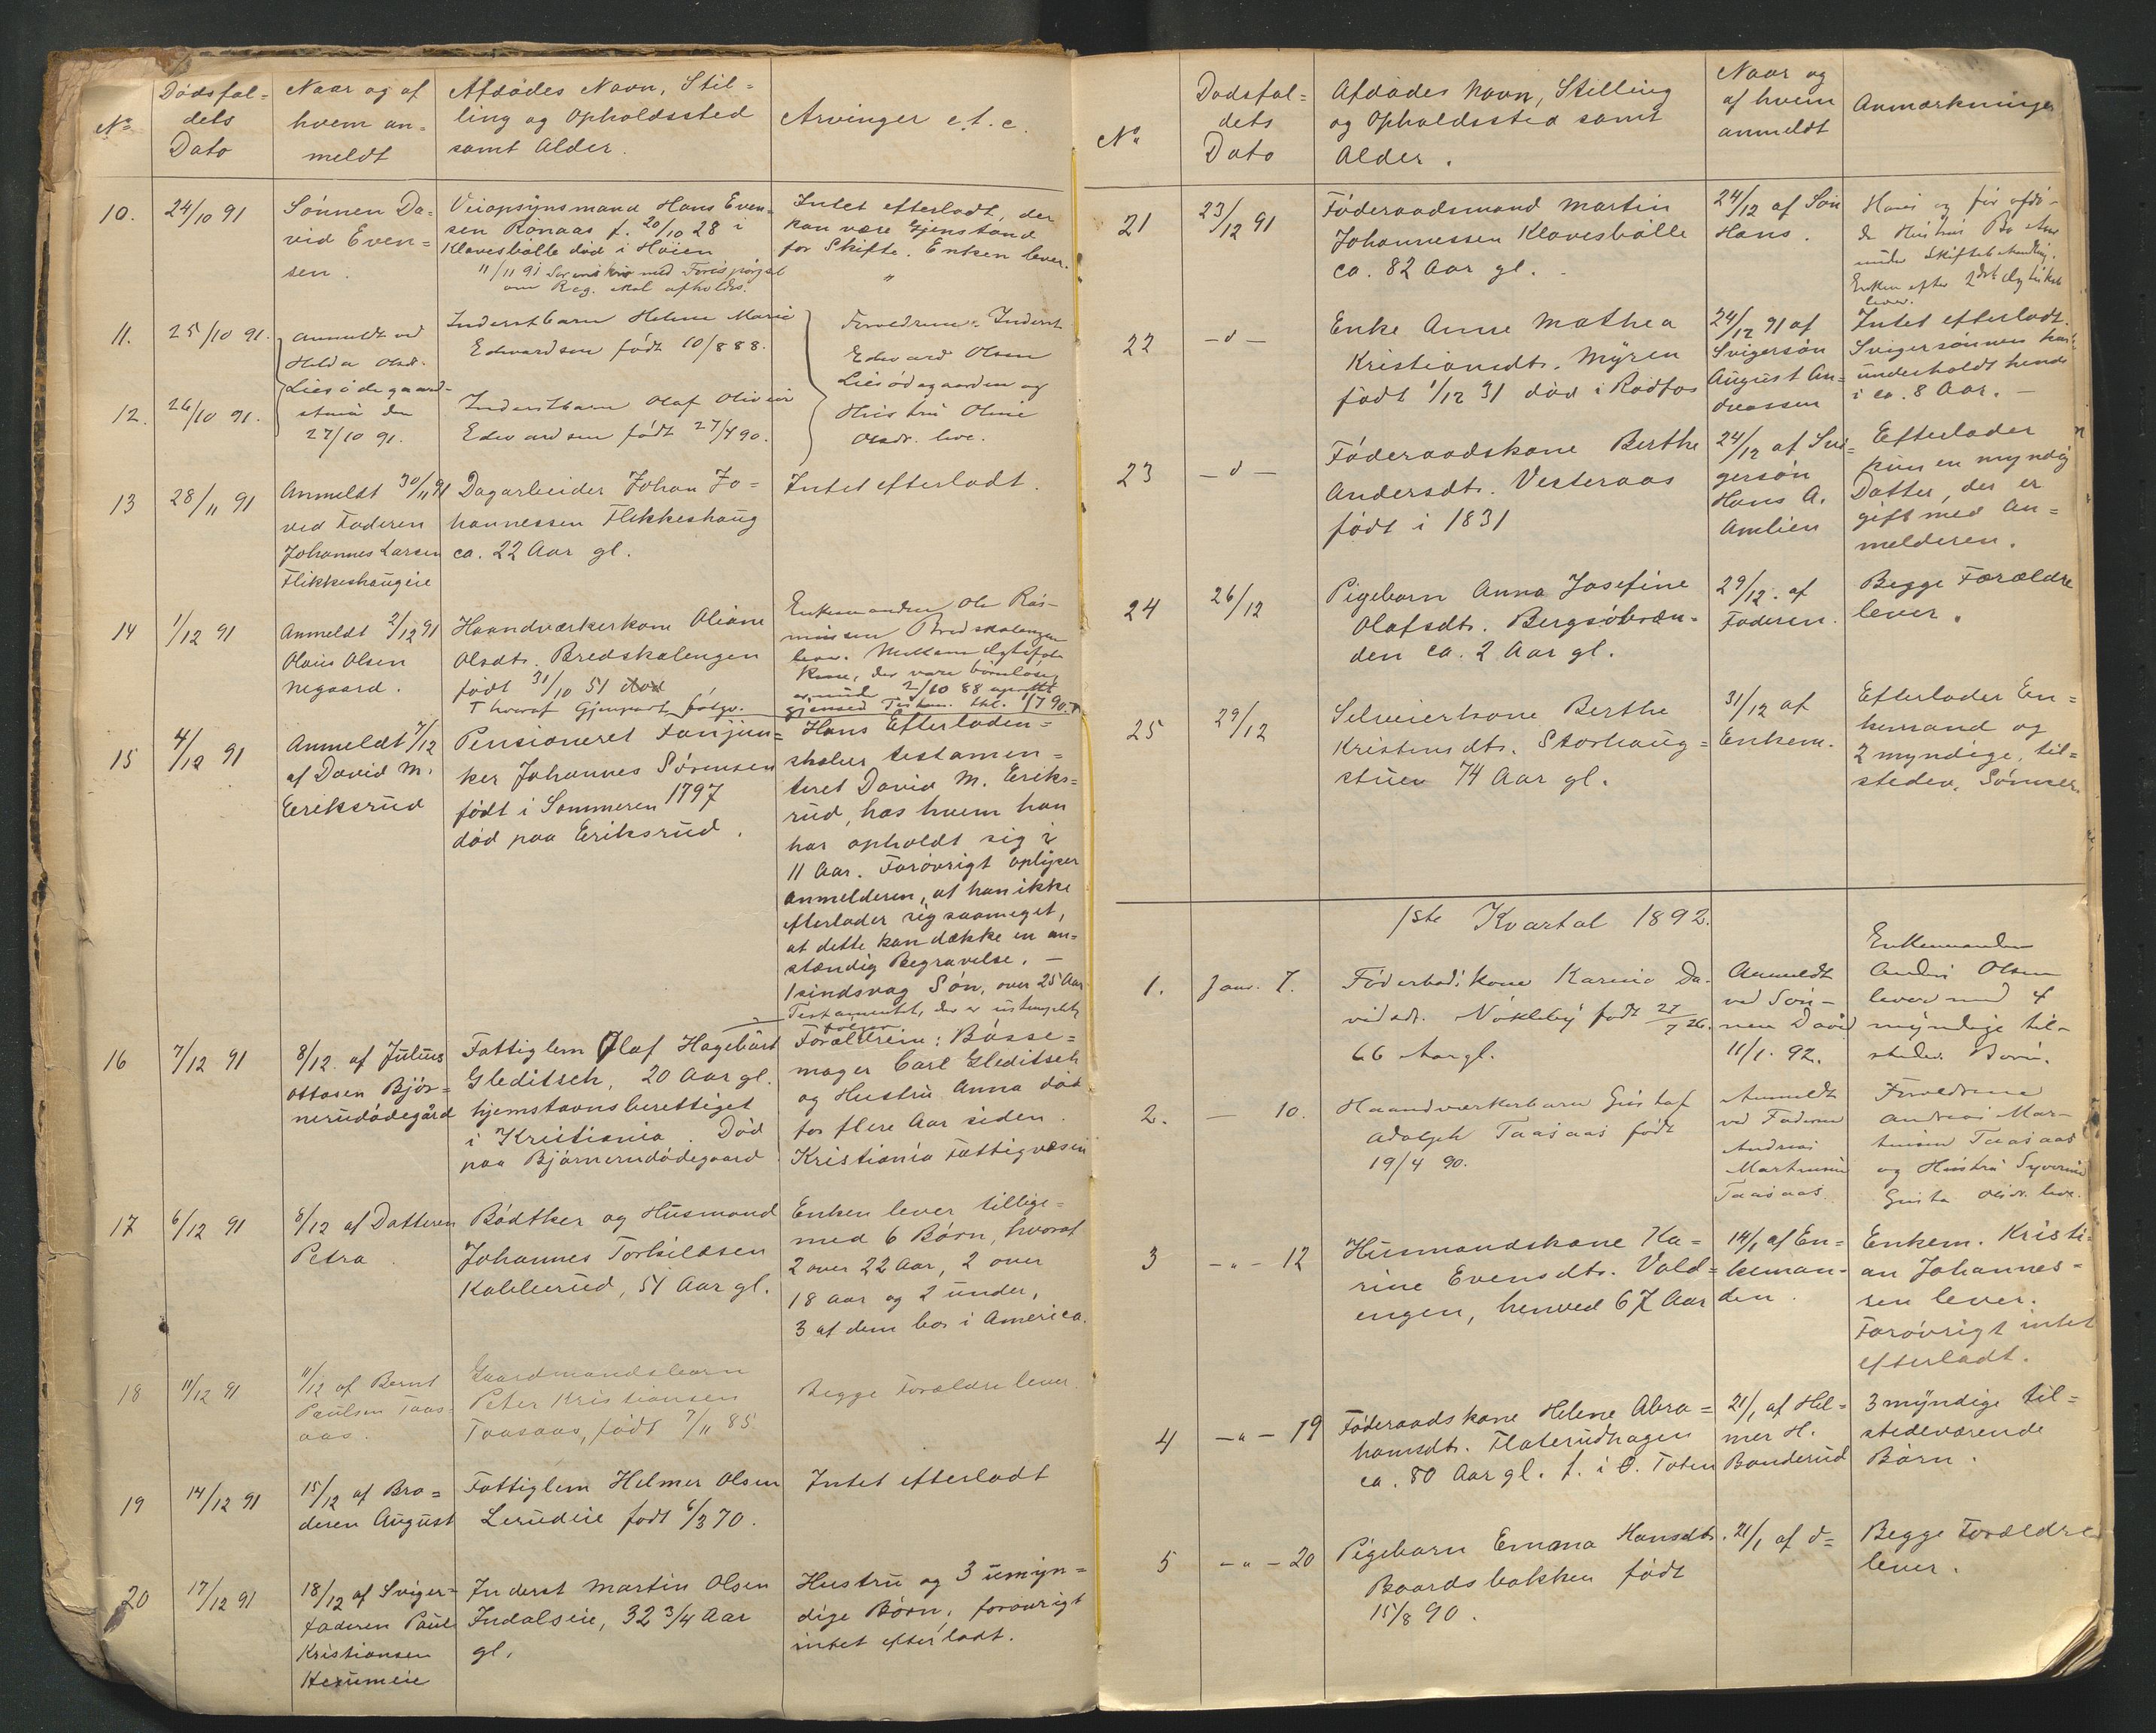 No
Dödsfal=
dets
Dato
Naar og af
hvem an=
meldt
Afdödes Navn, Stil=
ling og Opholdssted
samt Alder.
Arvinger e.t.c.
10.
24/10 91
Sönnen Da=
vid Even=
sen.
Veiopsynsmand Hans Even=
sen Ronaas f. 20/10 28 i
Klovesbölle död i Höien
11/11 91
Intet efterladt, der
kan være Gjenstand
for Skifte. Enken lever.
11.
25/10 91.
12.
26/10 91.
Anmeldt ved
Hilda Olsd.
Liesödegaard-
den
27/10 91.
Inderstbarn Helene Marie
Edvardsen födt 10/8 88.
Inderstbarn Olaf Olivier
Edvardsen födt 27/4 90.
Forældrene: Inderst
Edvard Olsen
Liesödegaarden og
Hustru Oline
Olsdr. leve.
13
28/11 91
Anmeldt 30/11 91
ved Faderen
Johannes Larsen
Flikkeshaugeie
Dagarbeider Johan Jo=
hannessen Flikkeshaug
ca. 22 Aar gl.
Intet efterladt.
14
1/12 91
Anmeldt 2/12 91
Olaus Olsen
negaard.
Haandværkerkone Oliane
Olsdtr. Bredskalengen
födt 31/10 51
Enkemanden Ole Ras-
mussen Bredskalengen
lever. Mellem Ægtefol-
kene, der vare börnlöse,
15
4/12 91
Anmeldt 7/12
af David M.
Eriksrud
Pensioneret Fanejun=
ker Johannes Sörensen
födt i Sommeren 1797
död paa Eriksrud.
Hans Efterladen=
skaber testamen=
teret David M. Eriks=
rud, hos hvem han
har opholdt sig i
11 Aar. Forövrigt oplyser
Anmelderen, at han ikke
efterlader sig saameget,
at dette kan dække en an=
stændig Begravelse. —
1 sindsvag Sön, over 25 Aar
Testamentet, der er ustemplet,
fölger
16
7/12 91
8/12 af Julius
Ottosen Björ=
nerudödegård
Fattiglem Olaf Hagebart
Gleditsch, 20 Aar gl.
hjemstavnsberettiget
i Kristiania. Död
paa Björnerudödegaard
Forældrene: Bösse=
mager Carl Gleditsch
og Hustru Anna död
for flere Aar siden.
Kristiania Fattigvæsen
17
6/12 91
8/12 af Datteren
Petra
Bödtker og Husmand
Johannes Torkildsen
Kobberud, 51 Aar gl.
Enken lever tillige=
med 6 Börn, hvoraf
2 over 22 Aar, 2 over
18 Aar og 2 under,
3 af dem bor i America.
18
11/12 91
11/12 af Bernt
Paulsen Taas=
aas.
Gaardmandsbarn
Peter Kristiansen
Taasaas, födt 7/11 85
Begge Forældre lever.
19
14/12 91
15/12 af Bro=
deren August
Fattiglem Helmer Olsen
Lerudeie födt 6/3 70.
Intet efterladt
20
17/12 91
18/12 af Sviger=
faderen Paul
Kristiansen
Hexumeie
Inderst Martin Olsen
Indalseie, 32 3/4 Aar
gl.
Hustru og 3 umyn=
dige Börn, forövrigt
intet efterladt.
No
Dödsfal=
dets
Dato
Afdödes Navn, Stilling
og Opholdssted samt
Alder.
Naar og
af hvem
anmeldt
Anmærkninger
21
23/12 91
Föderaadsmand Martin
Johannessen Klovesbölle
ca. 82 Aar gl.
24/12 af Sön
Hans.
Hans og för afdö-
de Hustrus Bo
under Skiftebehandling.
Enken efter 2det Ægteskab
lever.
22
— d —
Enke Anne Mathea
Kristiansdtr. Myren
födt 1/12 31 död i Rödfos
24/12 91 af
Svigersön
August An=
dreassen
Intet efterladt.
Svigersönnen har
underholdt hende
i ca. 8 Aar. —
23
— d —
Föderaadskone Berthe
Andersdtr. Vesteraas
födt i 1831
24/12 af Svi=
gersön
Hans A.
Amlien
Efterlader
kun en myndig
Datter, der er
gift med An=
melderen.
24
26/12
Pigebarn Anna Josefine
Olafsdtr. Bergsöbræn=
den ca. 2 Aar gl.
29/12. af
Faderen.
Begge Forældre
lever.
25
29/12
Selveierkone Berthe
Kristensdtr. Storhaug=
stuen 74 Aar gl.
31/12 af
Enkem.
Efterlader En=
kemand og
2 myndige, til=
stedev. Sönner.
1ste Kvartal 1892.
1.
Janr. 7.
Föderaadskone Karine Da-
vidsdr. Nökleby födt 27/7 26.
66 Aar gl.
Anmeldt
ved Sön-
nen David
11/1. 92.
Enkemanden
Anders Olsen
lever med 4
myndige til-
stedev. Börn.
2.
— 10.
Haandværkerbarn Gustaf
Adolph Taasaas födt
19/4 90.
Anmeldt
ved Faderen
Andreas
Martinsen
Taasaas.
Forældrene
Andreas Mar-
tinsen Taasaas
og Hustru Syverine
Gusta Olsdr. leve.
3
— " — 12
Husmandskone Ka=
rine Evensdtr. Vold=
engen, henved 67 Aar
14/1 af En=
keman=
den.
Enkem. Kristi=
an Johannes=
sen lever.
Forövrigt intet
efterladt.
4
— " — 19
Föderaadskone Helene Abra=
hamsdtr. Flaterudhagen
ca. 80 Aar gl. f. i Ö. Toten
21/1 af Hel=
mer H.
Banderud
3 myndige til=
stedeværende
Börn.
5
— " — 20
Pigebarn Emma Hansdtr.
Baardsbakken födt
15/8 90.
21/1 af d=
Begge Forældre
lever.